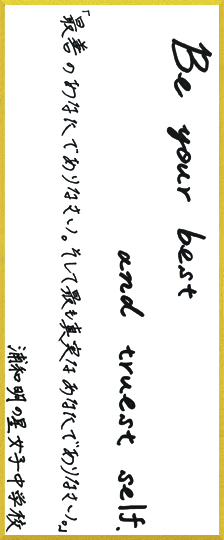 Be your best
and truest self.
「最善のあなたでありなさい。そして最も真実なあなたでありなさい。」
浦和明の星女子中学校